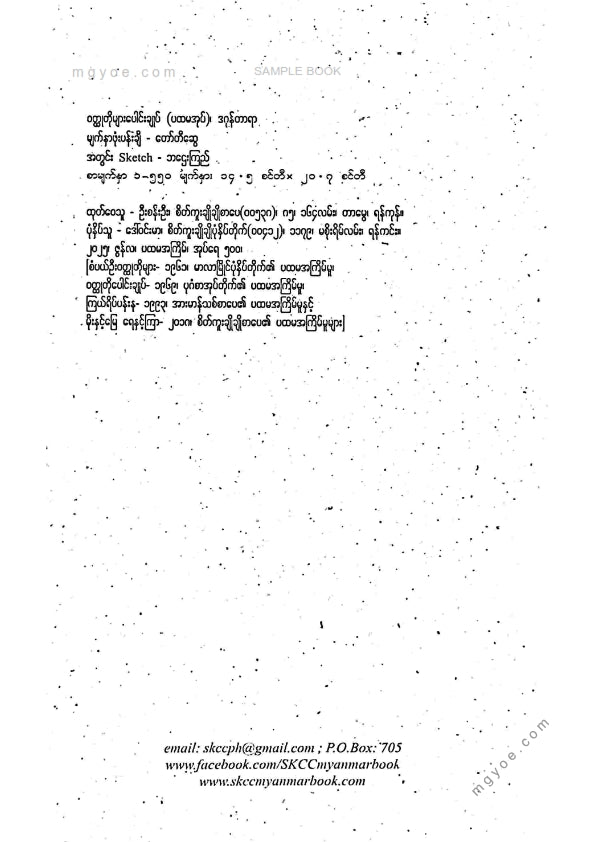 mgyoe.com
SAMPLE BOOK
ဝတ္ထုတိုများပေါင်းချုပ် (ပထမအုပ်)၊ ဒဂုန်တာရာ
မျက်နှာဖုံးပန်းချီ - တော်တီဆွေ
အတွင်း Sketch - ဘဌေးကြည်
စာမျက်နှာ ၁-၅၅၀ မျက်နှား ၁၄.၅ စင်တီ× ၂၀.၇ စင်တီ
ထုတ်ဝေသူ - ဦးစန်းဦး၊ စိတ်ကူးချိုချိုစာပေ(၀၀၅၃၈)၊ ၈၅၊ ၁၆၄လမ်း၊ တာမွေ၊ ရန်ကုန်။
ပုံနှိပ်သူ - ဒေါ်ဝင်းမာ၊ စိတ်ကူးချိုချိုပုံနှိပ်တိုက်(၀၀၄၁၂)၊ ၁၁၇၉၊ မစိုးရိမ်လမ်း၊ ရန်ကင်း။
၂၀၂၅၊ ဇွန်လ၊ ပထမအကြိမ်၊ အုပ်ရေ ၅၀၀၊
[စံပယ်ဦးဝတ္ထုတိုများ- ၁၉၆၁၊ မာလာမြိုင်ပုံနှိပ်တိုက်၏ ပထမအကြိမ်မူ၊
ဝတ္ထုတိုပေါင်းချုပ်- ၁၉၆၉၊ ပုဂံစာအုပ်တိုက်၏ ပထမအကြိမ်မူ၊
ကြယ်ရိပ်ပန်းနု- ၁၉၉၃၊ အားမာန်သစ်စာပေ၏ ပထမအကြိမ်မူနှင့်
မိုးနှင့်မြေ ရေနှင့်ကြာ- ၂၀၁၈၊ စိတ်ကူးချိုချိုစာပေ၏ ပထမအကြိမ်မူများ]
email: skccph@gmail.com ; P.O.Box: 705
www.facebook.com/SKCCmyanmarbook
www.skccmyanmarbook.com
mgyoe.com